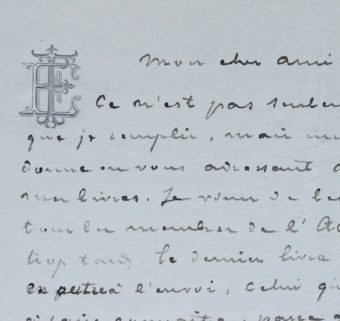 Mon cher ami
Ce n'est pas seulem
que je remplis, mais un
donne en vous adressant
mes livres. Je viens de
tomber membre de l'Ac
trop tard, le dernier livre
à l'envoi, celui qu